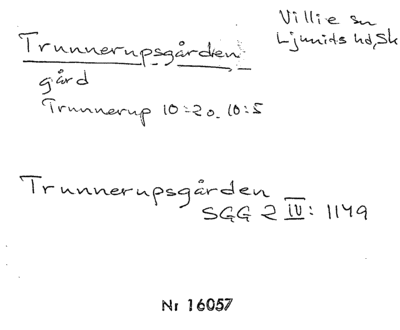 Villie sn
Ljunits hd, Sk
Trunnerupsgården
gård
Trunnerup 10:20. 10:5
Trunnerupsgården
SGG 2 IV: 1149
Nr 16057